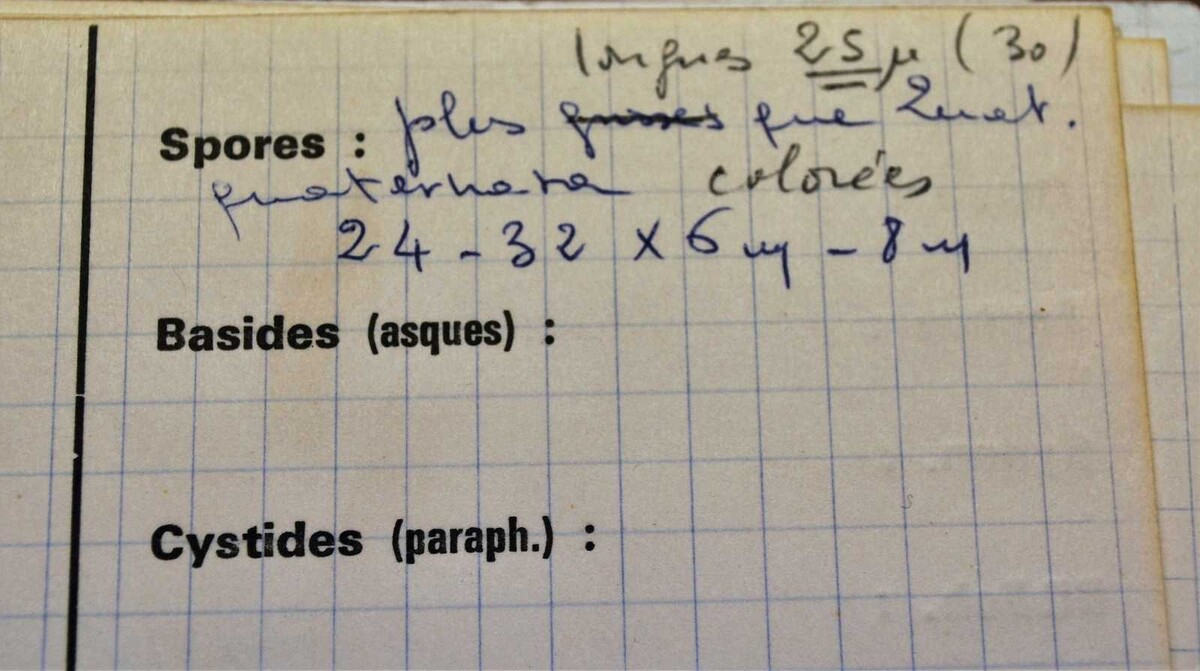 longues 25 µ (30)
Spores : plus grosses que Quat.
quaternata colorées
24 - 32 x 6 µ - 8 µ
Basides (asques) :
Cystides (paraph.) :